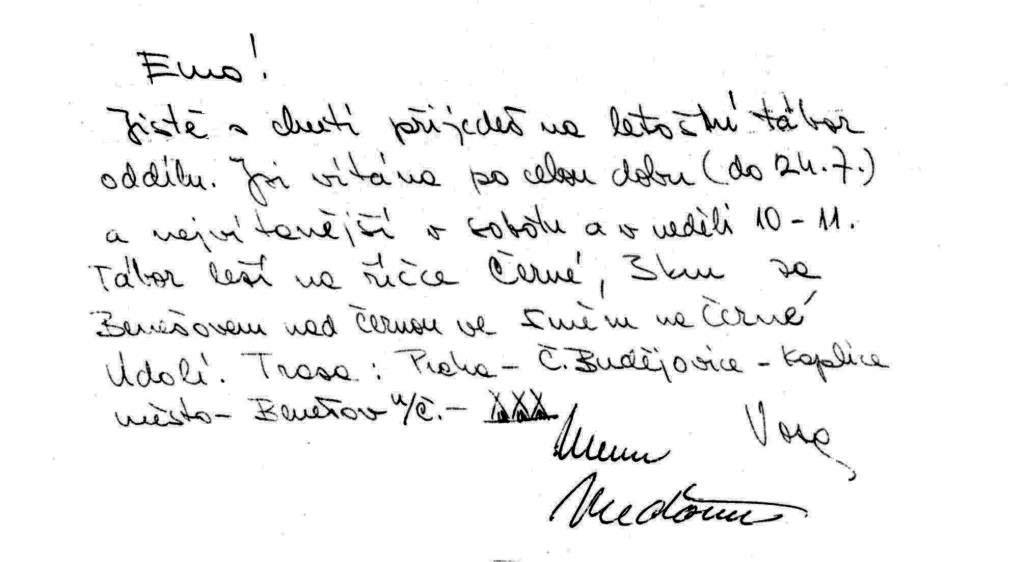 Emo!
Jistě s chutí přijedeš na letošní tábor
oddílu. Jsi vítána po celou dobu (do 24.7.)
a nejvítanější v sobotu a v neděli 10-11.
Tábor leží na říčce Černé, 3km za
Benešovem nad Černou ve směru na Černé
Údolí. Trasa: Praha - Č. Budějovice - Kaplice
město - Benešov n/Č. - XXX